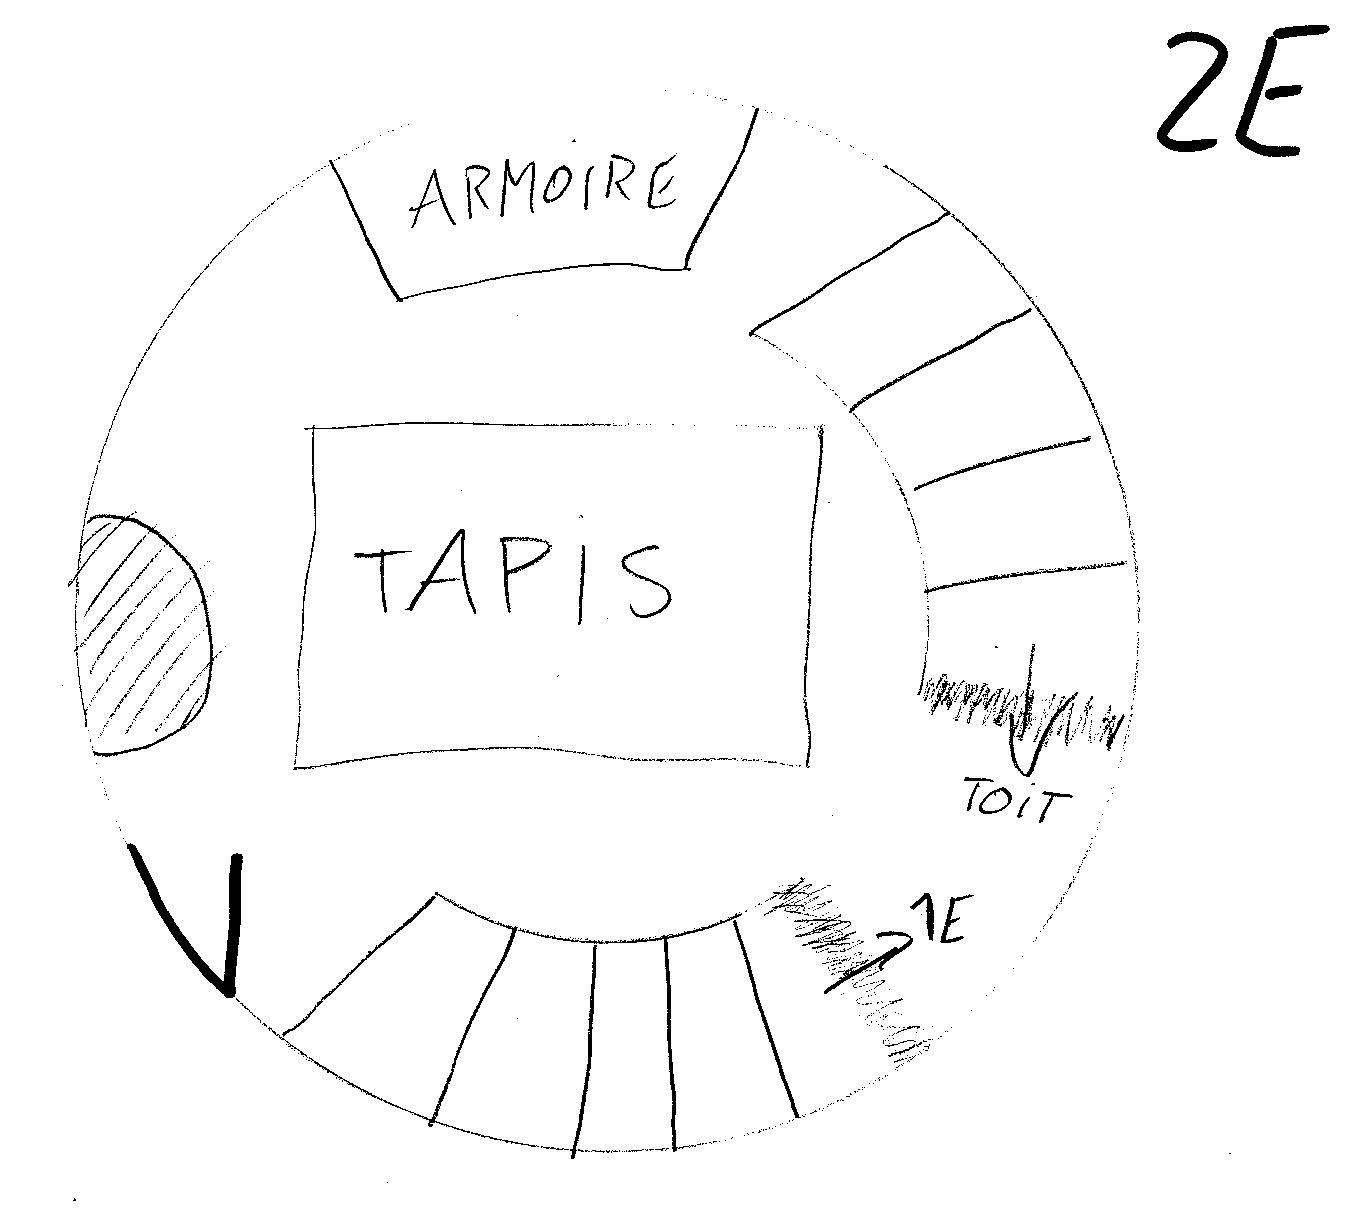 2E
ARMOIRE
TAPIS
TOIT
1E